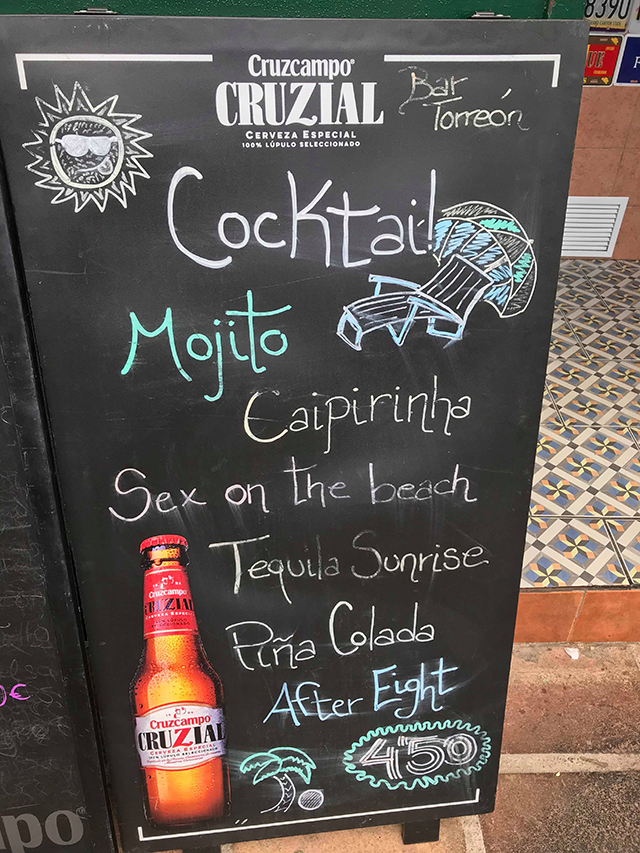 Cruzcampo®
CRUZIAL
CERVEZA ESPECIAL
100% LÚPULO SELECCIONADO
Bar
Torreón
Cocktail
Mojito
Caipirinha
Sex on the beach
Tequila Sunrise
Piña Colada
After Eight
4'50
Cruzcampo
CRUZIAL
Cruzcampo
CRUZIAL
CERVEZA ESPECIAL
100% LÚPULO SELECCIONADO
€
mpo®
8390